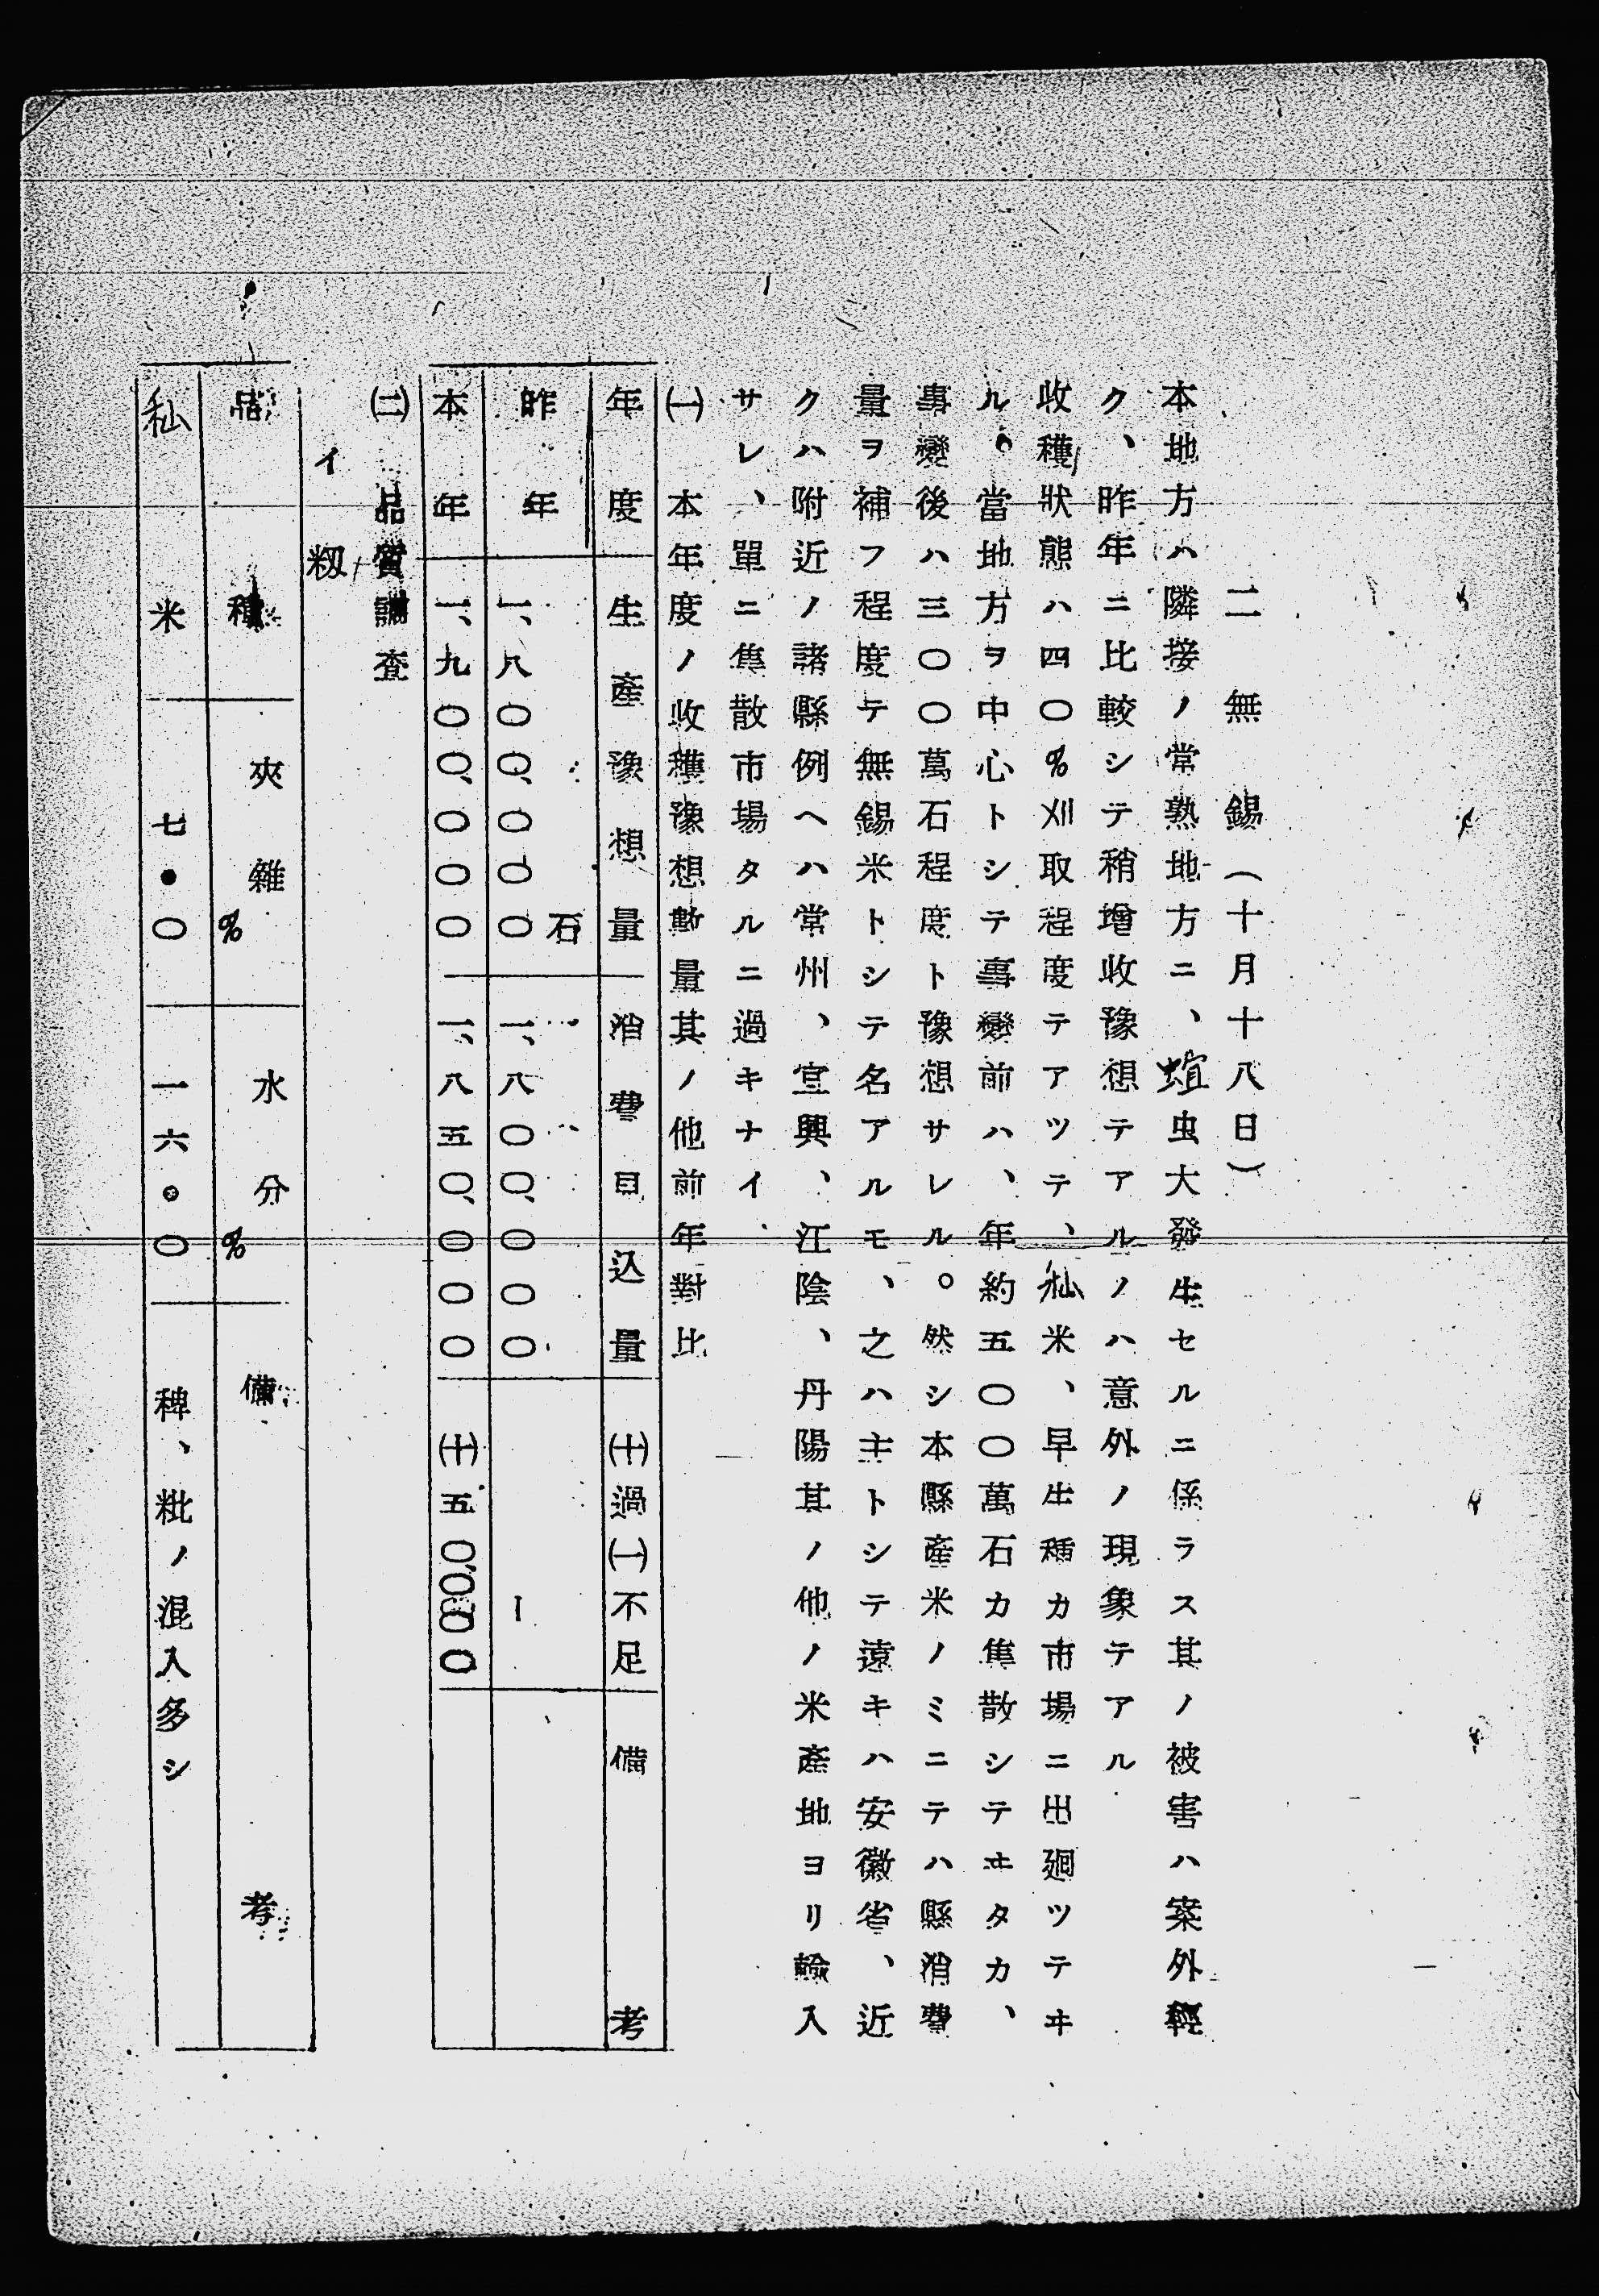 二　無　錫（十月十八日）
本地方ハ隣接ノ常熟地方ニ、蝗虫大發生セルニ係ラス其ノ被害ハ案外輕
ク、昨年ニ比較シテ稍增收豫想テアルノハ意外ノ現象テアル
收穫狀態ハ四〇％刈取程度テアツテ、籼米、早生種カ市場ニ出廻ツテヰ
ル。當地方ヲ中心トシテ事變前ハ、年約五〇〇萬石カ隼散シテヰタカ、
事變後ハ三〇〇萬石程度ト豫想サレル。然シ本縣產米ノミニテハ縣消費
量ヲ補フ程度テ無錫米トシテ名アルモ、之ハ主トシテ遠キハ安徽省、近
クハ附近ノ諸縣例ヘハ常州、宜興、江陰、丹陽其ノ他ノ米產地ヨリ輸入
サレ、單ニ隼散市場タルニ過キナイ、
㈠　本年度ノ收穫豫想數量其ノ他前年對比
年度　生產豫想量　消費見込量　㈩過㈠不足　備考
昨年　一、八〇〇、〇〇〇石　一、八〇〇、〇〇〇　－
本年　一、九〇〇、〇〇〇　一、八五〇、〇〇〇　㈩五〇、〇〇〇
㈡　品質調查
イ　籾
品種　夾雜％　水分％　備考
籼米　七・〇　一六。〇　稗、粃ノ混入多シ